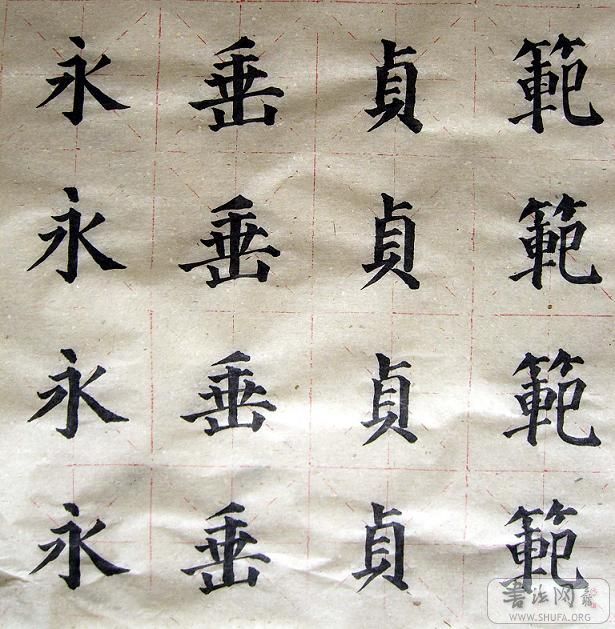 永垂貞範
永垂貞範
永垂貞範
永垂貞範
書法网
WWW.SHUFA.ORG